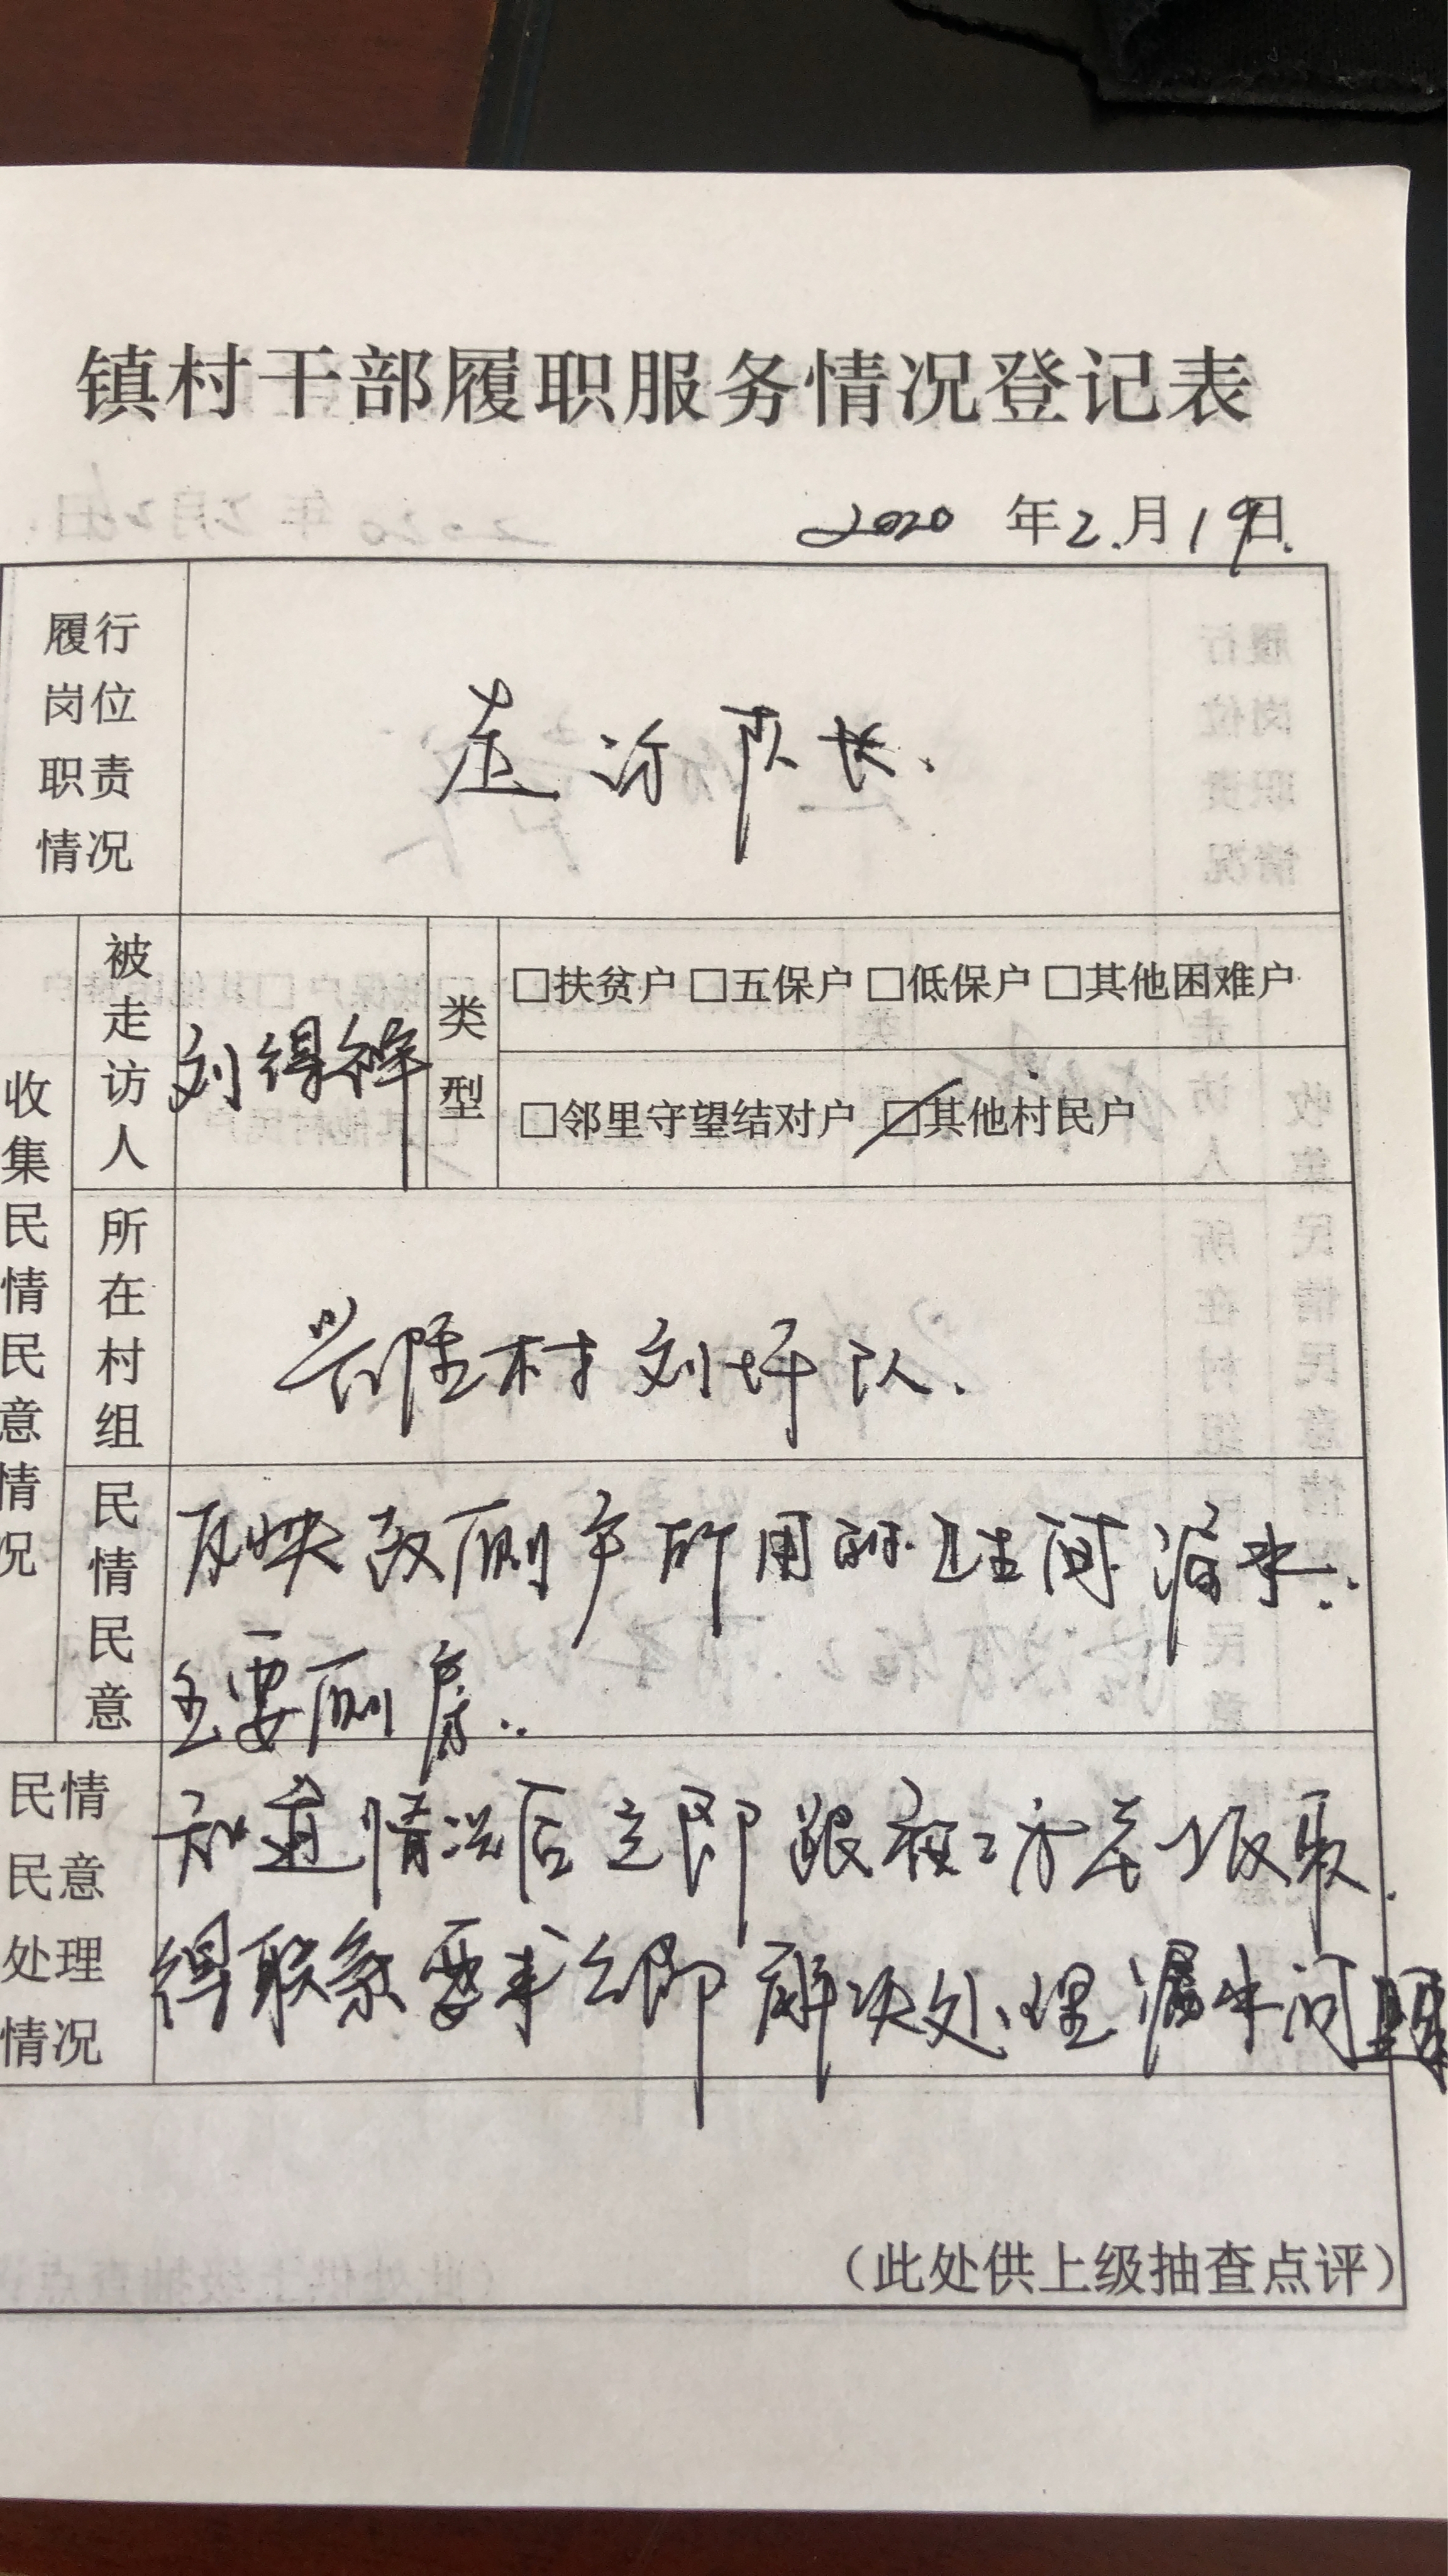 镇村干部履职服务情况登记表
2020 年2.月19日.
履行岗位职责情况
走访队长.
收集民情民意情况
被走访人
刘得祥
类型
□扶贫户 □五保户 □低保户 □其他困难户
□邻里守望结对户 ☑其他村民户
所在村组
兴隆村刘坪队.
民情民意
反映改厕户所用的卫生间漏水.
主要厕房..
民情民意处理情况
知道情况后立即跟被访者上级取.
得联系要求立即解决处理漏水问题
（此处供上级抽查点评）